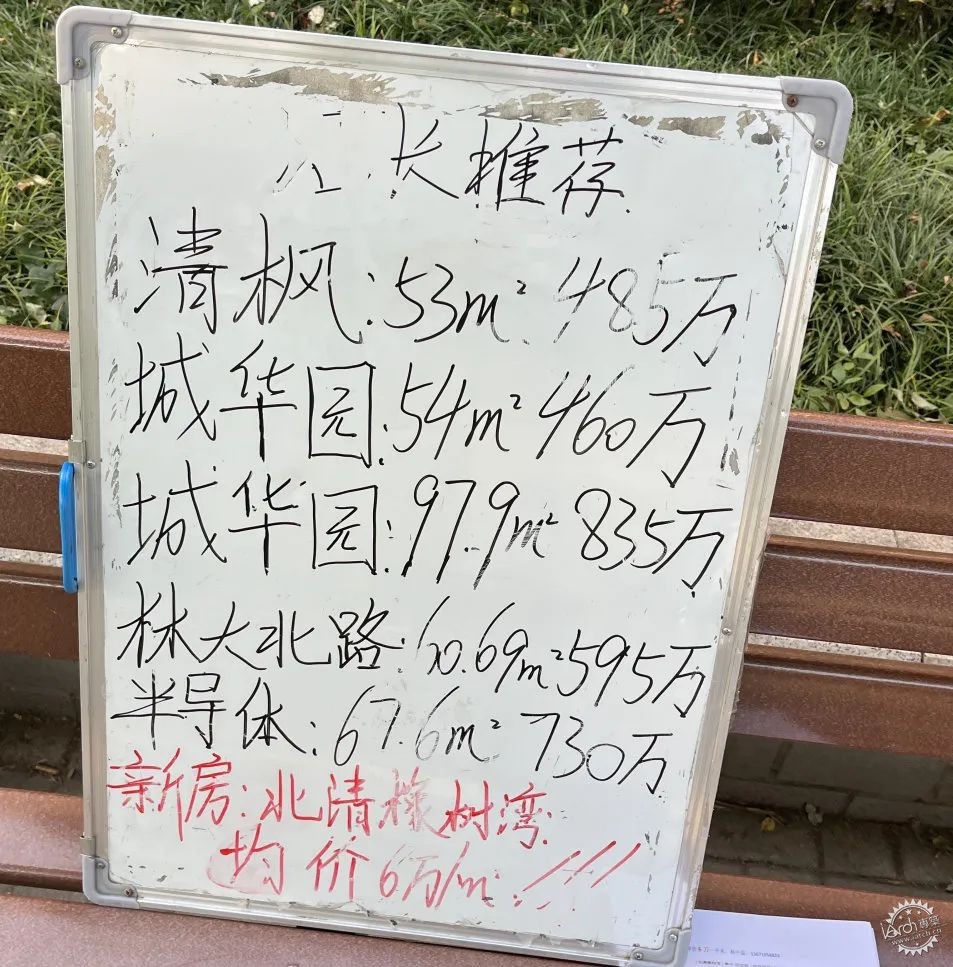 长推荐
清枫:53m² 485万
城华园:54m² 460万
城华园:97.9m² 835万
林大北路:60.69m² 595万
半导体:67.6m² 730万
新房:北清橡树湾
均价6万/m² !!!
专筑
www.iarch.cn